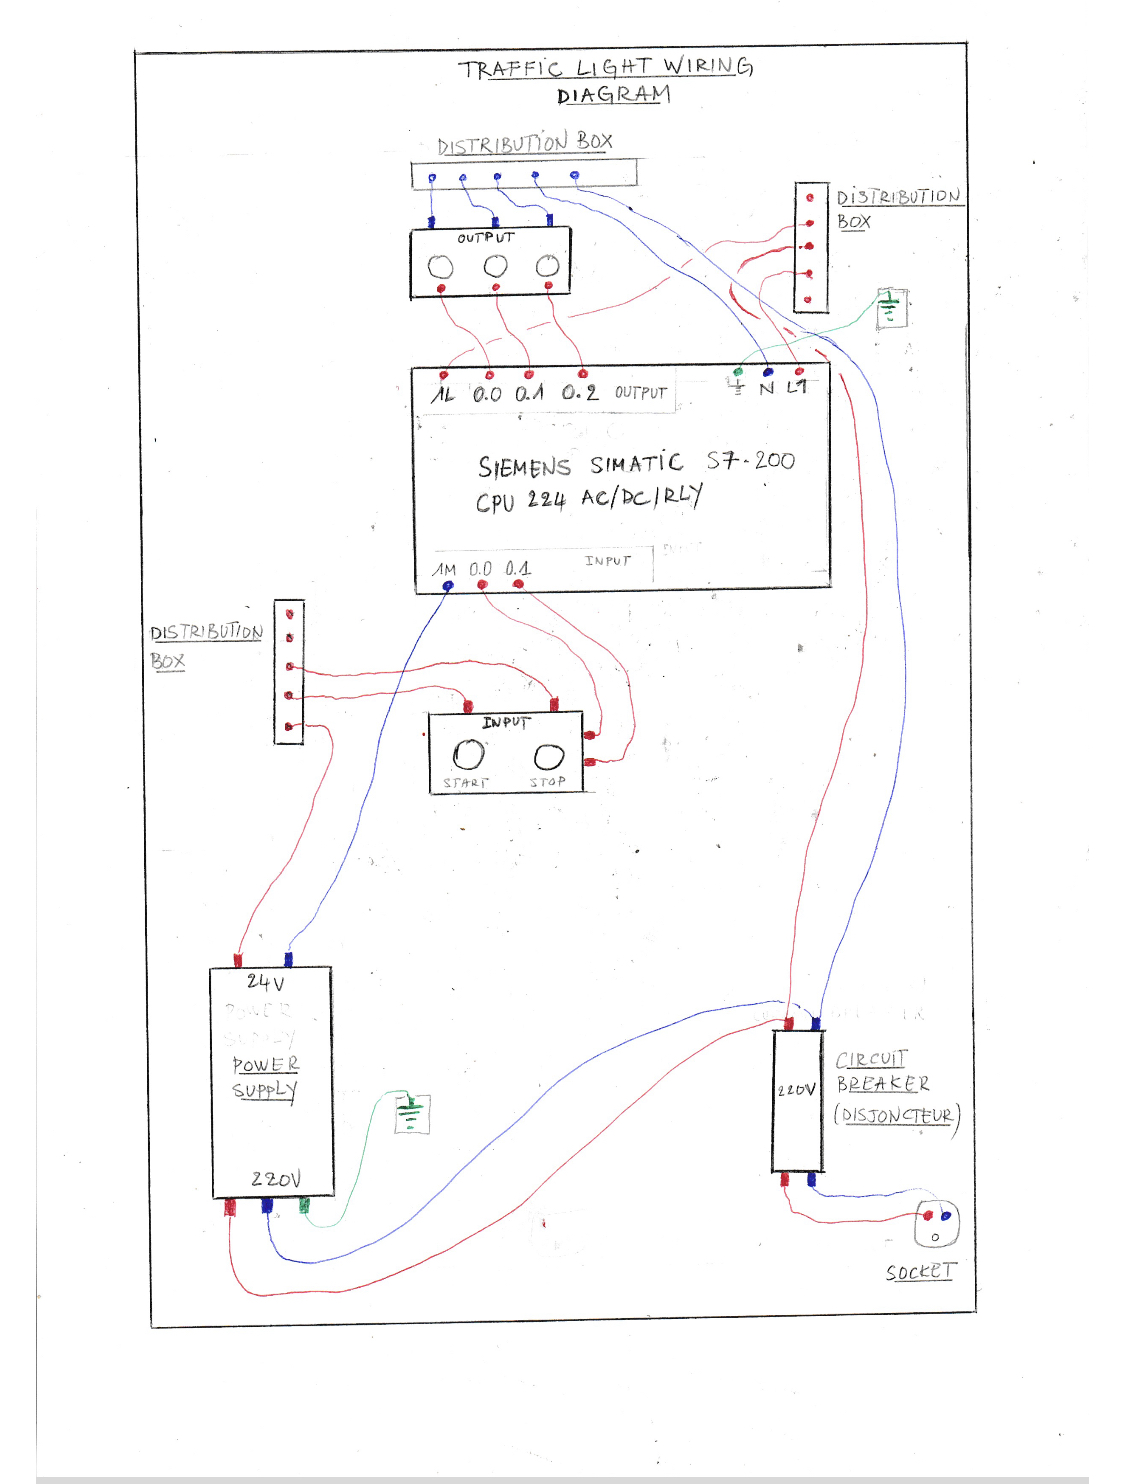 TRAFFIC LIGHT WIRING
DIAGRAM
DISTRIBUTION BOX
DISTRIBUTION
BOX
OUTPUT
1L 0.0 0.1 0.2 OUTPUT
N L1
SIEMENS SIMATIC S7-200
CPU 224 AC/DC/RLY
INPUT
1M 0.0 0.1
DISTRIBUTION
BOX
INPUT
START STOP
24V
POWER
SUPPLY
POWER
SUPPLY
220V
220V
CIRCUIT
BREAKER
(DISJONCTEUR)
SOCKET